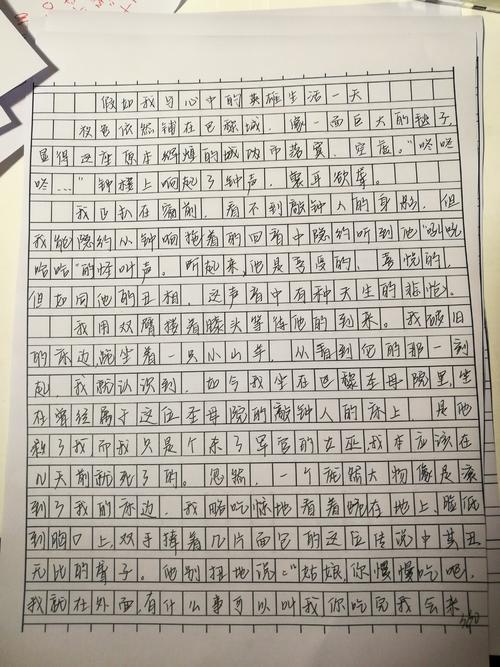 假如我与心中的英雄生活一天
夜色依然铺在巴黎城,像一面巨大的
显得这座原本辉煌的城内市落寞、空虚。"咚咚
咚…"钟楼上响起了钟声,震耳欲聋。
我正趴在窗前,看不到敲钟人的身影,但
我能隐约从钟响拖着的回音中隐约听到他
哈哈"的怪叫声。听起来,他是享受的、喜悦的,
但如同他的丑相,这声音中有种天生的悲怆。
我用双臂搂着膝头等待他的到来。我破旧
的床边,跪坐着一只小山羊,从看到它的那一刻
起,我就认识到,如今我坐在巴黎圣母院里,坐
在曾经属于这位圣母院的敲钟人的床上 是他
救了我而我只是个杀了军官的女巫,我本应该在
几天前就死了的。忽然,一个庞然大物像是滚
到了我的床边,我略吃惊地看着跪在地上、脸低
到胸口上,双手捧着几片面包的这位传说中其丑
无比的聋子。他别扭地说:"姑娘,你慢慢吃吧,
我就在外面,有什么事可以叫我你吃完我会来